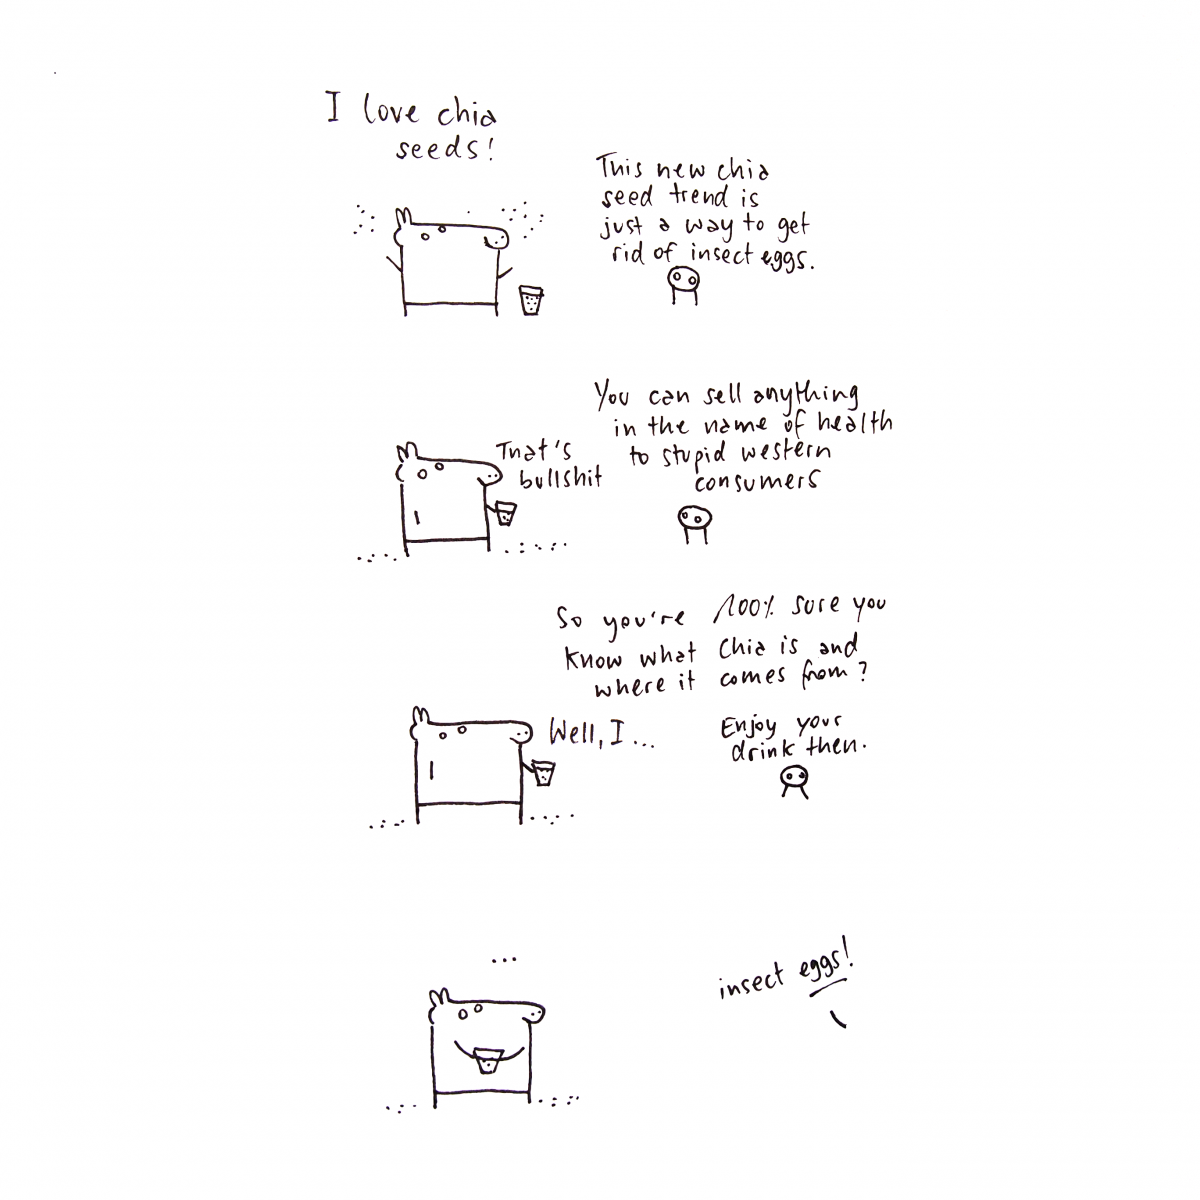 I love chia
seeds!
This new chia
seed trend is
just a way to get
rid of insect eggs.
You can sell anything
in the name of health
to stupid western
consumers
That's
bullshit
So you're 100% sure you
know what chia is and
where it comes from?
Well, I...
Enjoy your
drink then.
...
insect eggs!